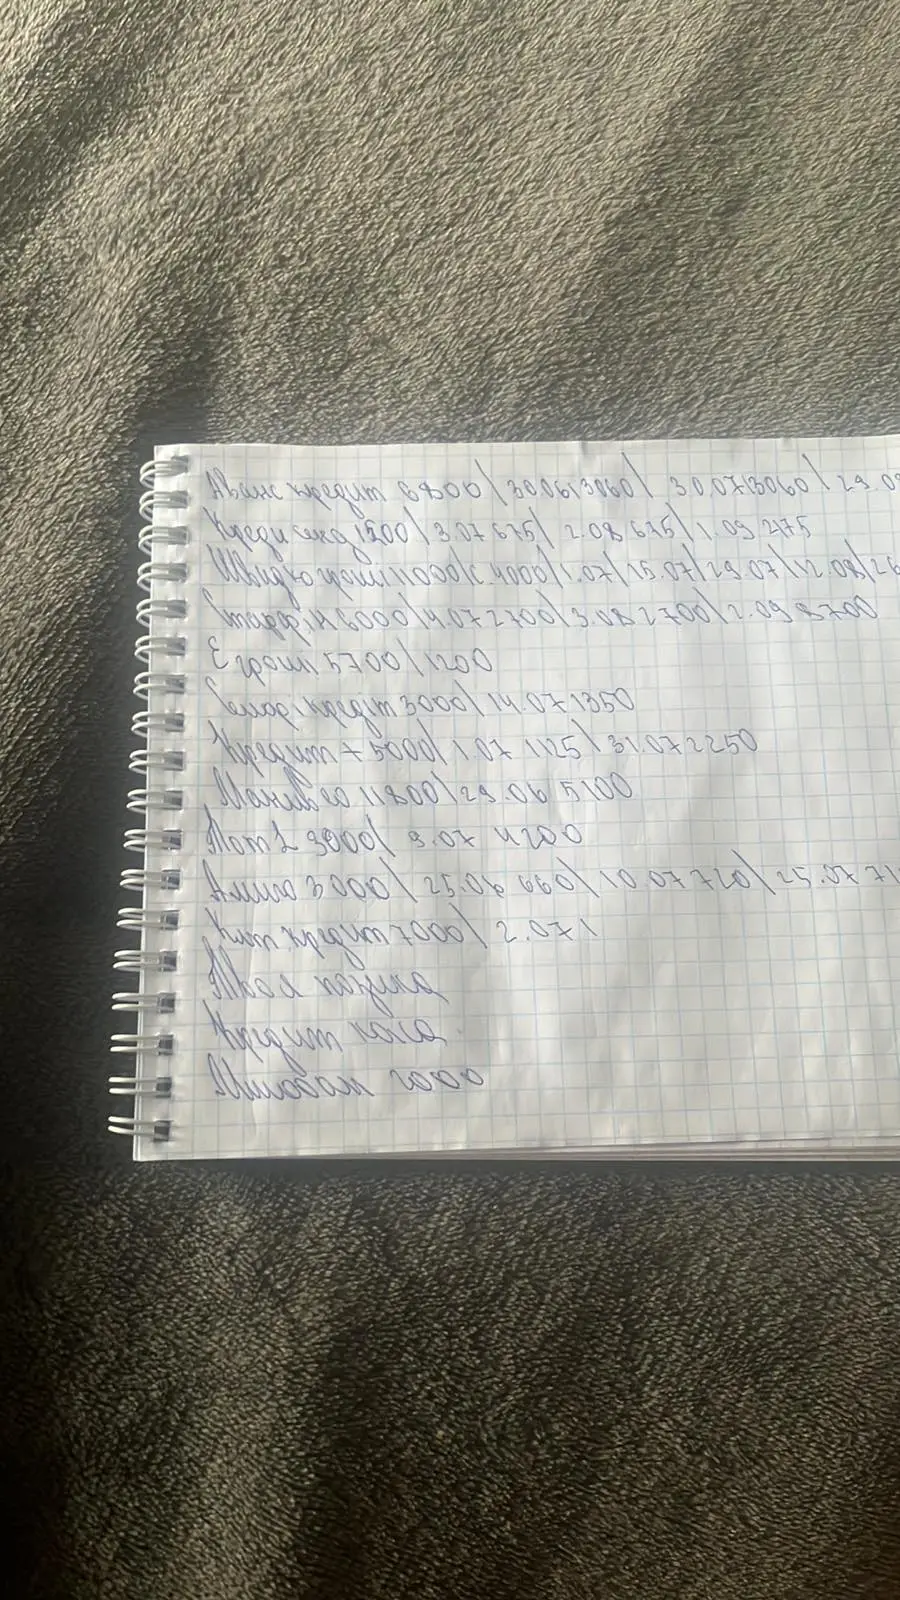 Аванс кредит 6800\ 30.06 13060\ 30.07 13060\ 29.0
Креди 1500\ 3.07 675\ 2.08 675\ 1.09 2175
Швидко гроші 11000\ с 4000\ 1.07\ 15.07\ 29.07\ 12.08\ 26
6000\ 4.07 2700\ 3.08 2700\ 2.09 8700
Є гроші 5700\ 1200
кредит 3000\ 14.07 1350
Кредит + 5000\ 1.07 1125\ 31.07 2250
11800\ 29.06 5100
3000\ 9.07 4200
3000\ 25.06 660\ 10.07 720\ 25.07 71
Кит кредит 7000\ 2.07\
Твоя позика
Кредит каса
2000